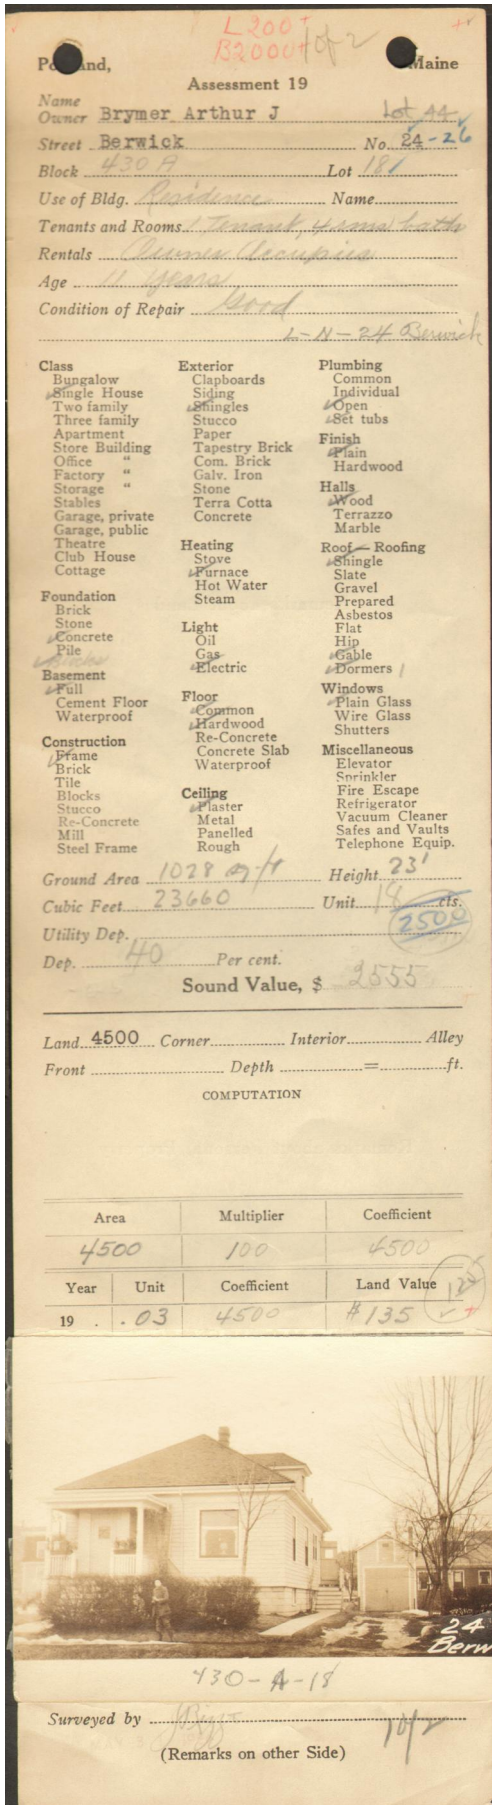 L200+
B2000+ 1 of 2
Maine
Assessment 19
Name
Owner Brymer Arthur J Lot 44
Street Berwick No. 24-26
Block 430 A Lot 18
Use of Bldg. Residence Name
Tenants and Rooms 1 Tenant, 4 rms bath
Rentals Owner Occupies
Age 11 years
Condition of Repair Good
L-N-24 Berwick
Class
Bungalow
Single House
Two family
Three family
Apartment
Store Building
Office "
Factory "
Storage "
Stables
Garage, private
Garage, public
Theatre
Club House
Cottage
Foundation
Brick
Stone
Concrete
Pile
Blocks
Basement
Full
Cement Floor
Waterproof
Construction
Frame
Brick
Tile
Blocks
Stucco
Re-Concrete
Mill
Steel Frame
Exterior
Clapboards
Siding
Shingles
Stucco
Paper
Tapestry Brick
Com. Brick
Galv. Iron
Stone
Terra Cotta
Concrete
Heating
Stove
Furnace
Hot Water
Steam
Light
Oil
Gas
Electric
Floor
Common
Hardwood
Re-Concrete
Concrete Slab
Waterproof
Ceiling
Plaster
Metal
Panelled
Rough
Plumbing
Common
Individual
Open
Set tubs
Finish
Plain
Hardwood
Halls
Wood
Terrazzo
Marble
Roof — Roofing
Shingle
Slate
Gravel
Prepared
Asbestos
Flat
Hip
Gable
Dormers 1
Windows
Plain Glass
Wire Glass
Shutters
Miscellaneous
Elevator
Sprinkler
Fire Escape
Refrigerator
Vacuum Cleaner
Safes and Vaults
Telephone Equip.
Ground Area 1028 sq ft Height 23'
Cubic Feet 23660 Unit 18 cts.
2500
Utility Dep.
Dep. 40 Per cent.
Sound Value, $ 2555
Land 4500 Corner Interior Alley
Front Depth = ft.
COMPUTATION
Area Multiplier Coefficient
4500 100 4500
Year Unit Coefficient Land Value
19 .03 4500 $135
125
24
Berw
430-A-18
Surveyed by
1 of 2
(Remarks on other Side)